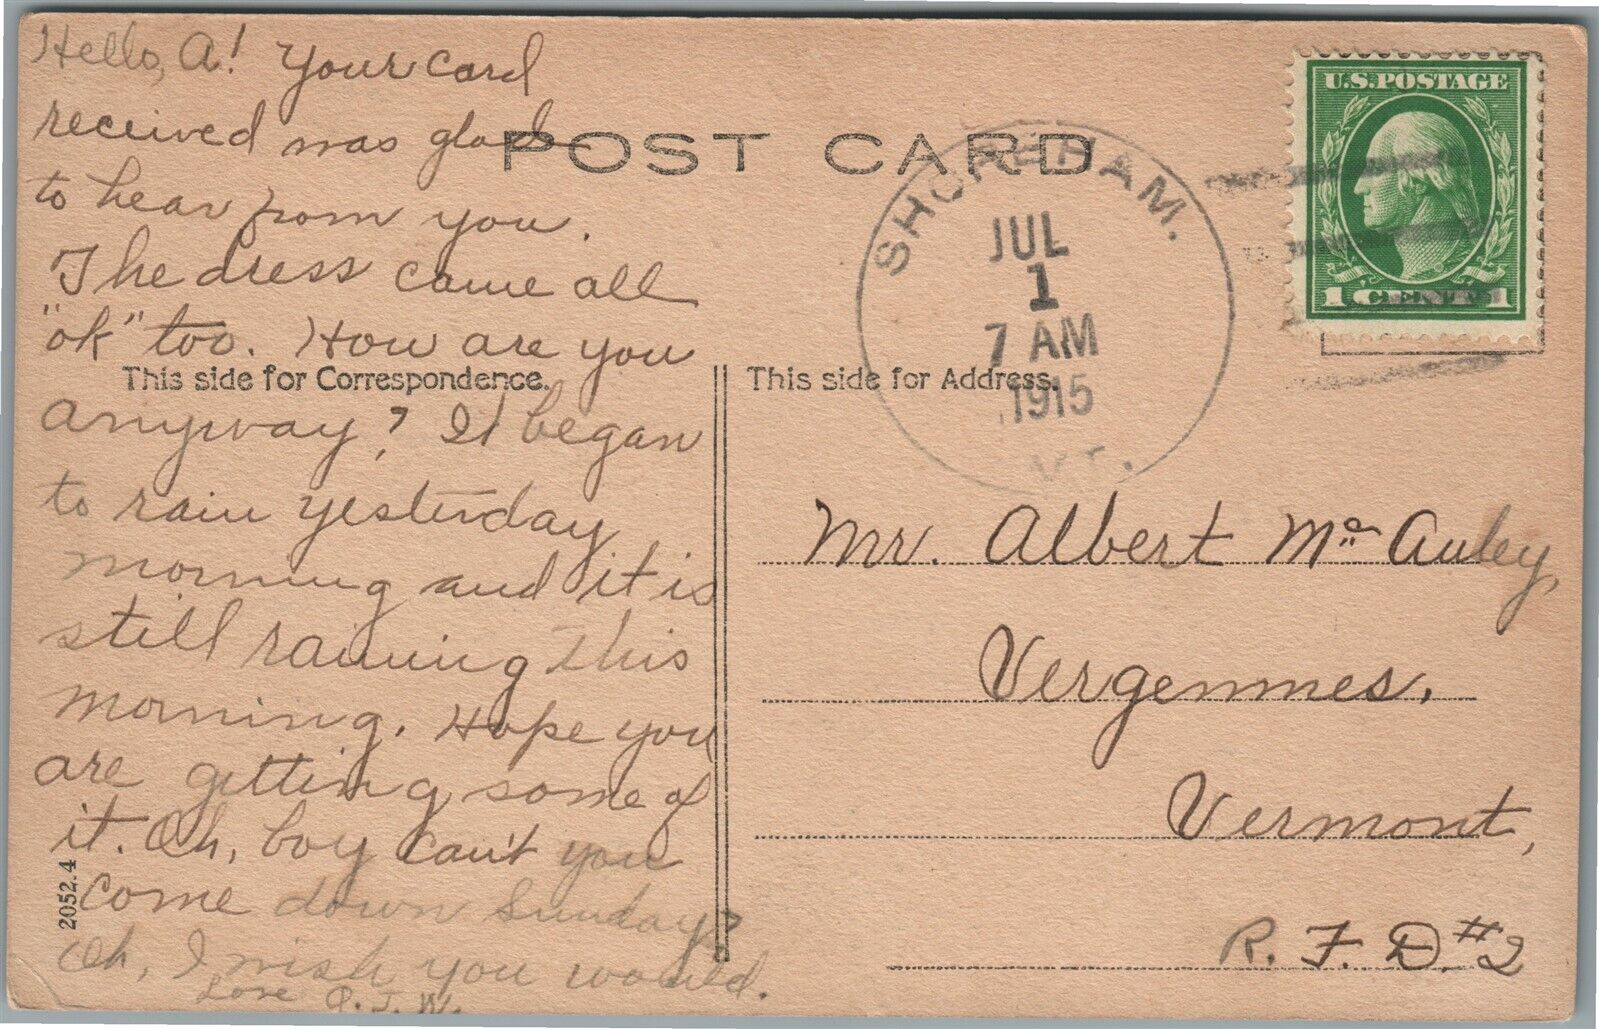 Hello, A! Your card
received was glad
to hear from you.
The dress came all
"ok" too. How are you
anyway? It began
to rain yesterday
morning and it is
still raining this
morning. Hope you
are getting some of
it. Oh, boy can't you
come down Sunday?
Oh, I wish you would.
Love
POST CARD
This side for Correspondence.
This side for Address.
2052.4
SHOREHAM.
JUL
1
7 AM
1915
VT.
U.S. POSTAGE
1 CENT 1
Mr. Albert Mc Auley,
Vergennes,
Vermont,
R. F. D. #2